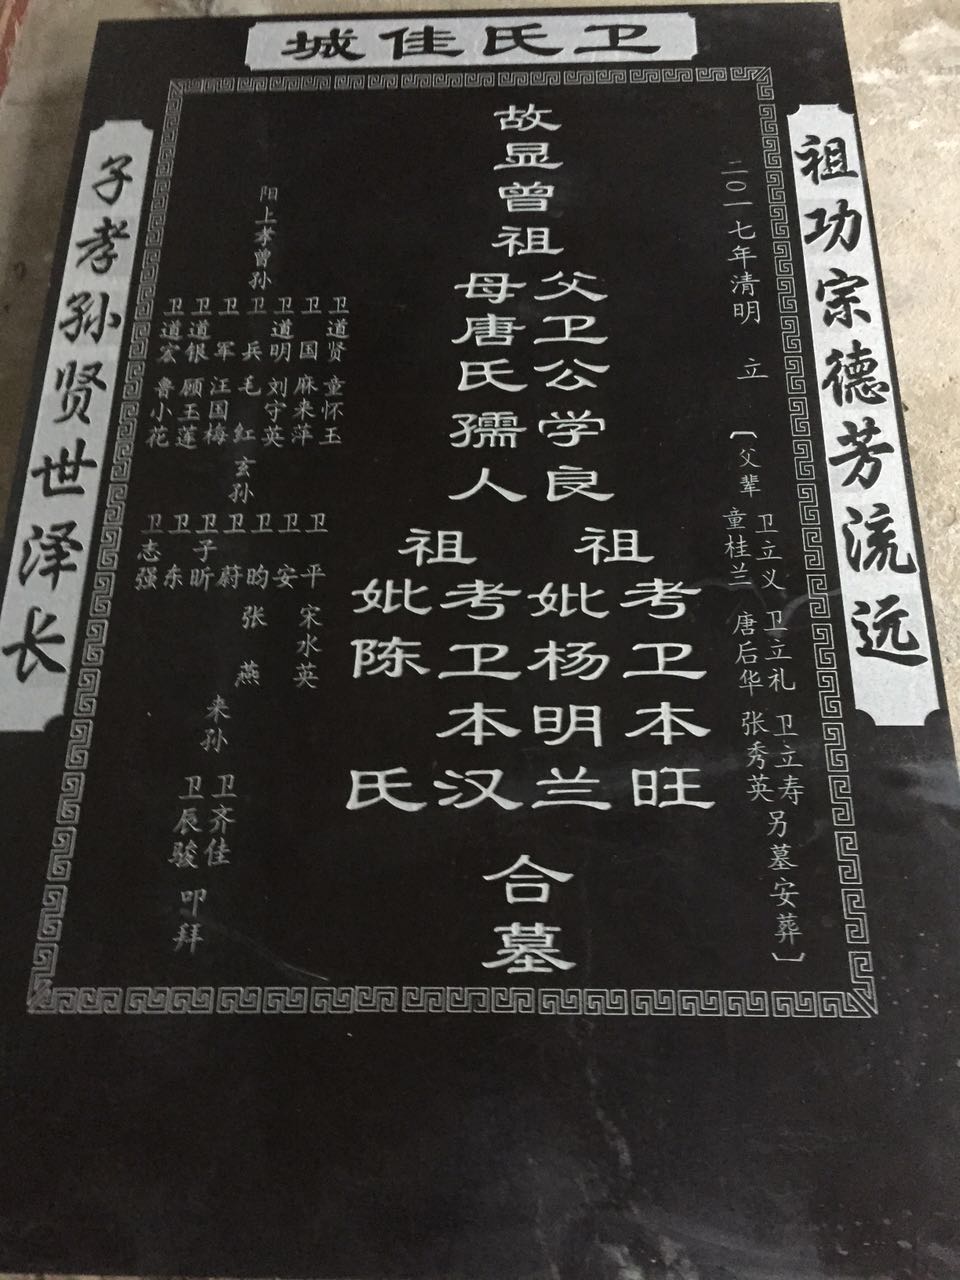 卫氏佳城
祖功宗德芳流远
二〇一七年清明 立
〔父辈 卫立义 卫立礼 卫立寿 另墓安葬〕
童桂兰 唐后华 张秀英
故显曾祖
父卫公学良
母唐氏孺人
祖
考卫本旺
妣杨明兰
祖
考卫本汉
妣陈氏
合墓
阳上孝曾孙
卫道贤 童怀玉
卫国 麻来萍
卫道明 刘守英
卫兵 毛红
卫军 汪国梅
卫道银 顾玉莲
卫道宏 鲁小花
玄孙
卫平 宋水英
卫安
卫昀 张燕
卫蔚
卫子昕
卫东
卫志强
来孙
卫齐佳
卫辰骏
叩拜
子孝孙贤世泽长